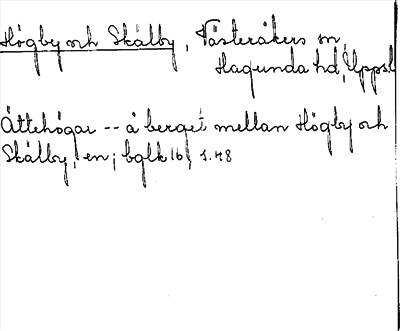 Högby och Skälby, Västeråkers sn,
Hagunda hd, Uppsl
Ättehögar -- å berget mellan Högby och
Skälby, en; bglk 16, s. 48